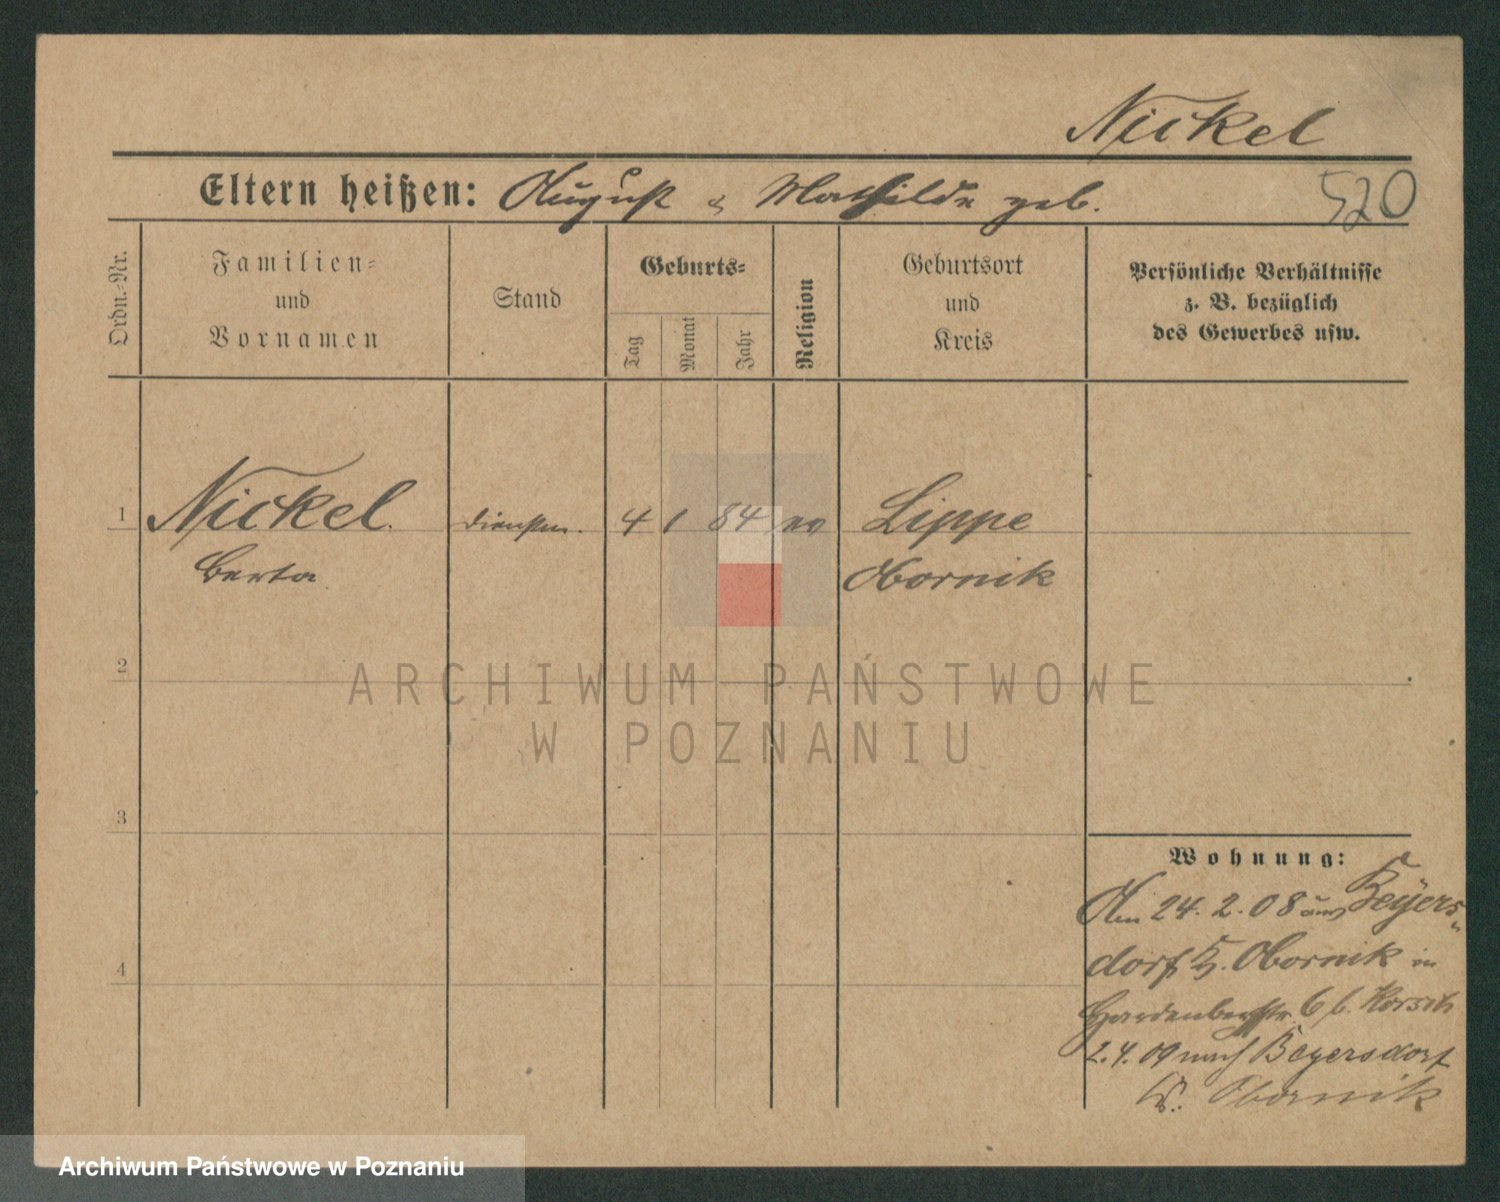 Nickel
Eltern heißen: August & Mathilde geb.
520
Ordn.-Nr.
Familien-
und
Vornamen
Stand
Geburts-
Tag
Monat
Jahr
Religion
Geburtsort
und
Kreis
Persönliche Verhältnisse
z. B. bezüglich
des Gewerbes usw.
1 Nickel. 4 1 84 ev Lippe
Berta Obornik
2
ARCHIWUM PAŃSTWOWE
W POZNANIU
3
Wohnung:
Am 24. 2. 08 aus Beyers-
dorf K. Obornik in
4
Hardenbergstr. 6 b. Korsch
2.4.09 nach Beyersdorf
K. Obornik
Archiwum Państwowe w Poznaniu